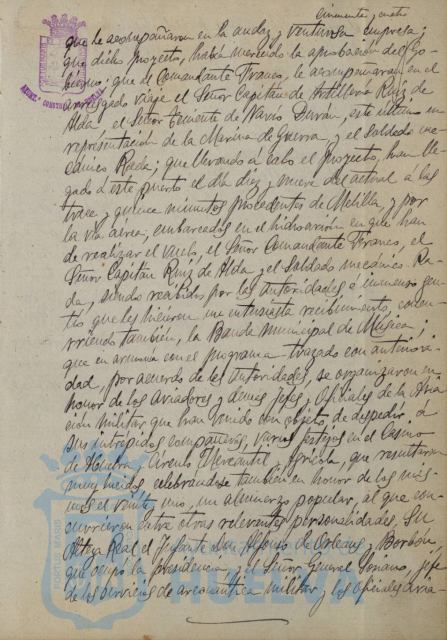 cincuenta y cuatro
que le acompañaron en la audaz y venturosa empresa;
que dicho proyecto, había merecido la aprobación del Go-
bierno: que al Comandante Franco, le acompañarán en el
arriesgado viaje el Señor Capitán de Artillería Ruiz de
Alda el Señor Teniente de Navío Durán, este último en
representación de la Marina de Guerra y el Soldado me-
cánico Rada; que llevando a cabo el proyecto, han lle-
gado a este puerto el día diez y nueve del actual a las
trece y quince minutos procedentes de Melilla, y por
la vía aérea, embarcados en el hidroavión en que han
de realizar el vuelo, el Señor Comandante Franco, el
Señor Capitán Ruiz de Alda y el Soldado mecánico Ra-
da, siendo recibidos por las autoridades e inmenso gen-
tío que les hicieron un entusiasta recibimiento, concu-
rriendo también, la Banda municipal de Música;
que en armonía con el programa trazado con anteriori-
dad, por acuerdo de las autoridades, se organizaron en
honor de los Aviadores y demás Jefes y Oficiales de la Avia
ción militar que han venido con objeto de despedir a
sus intrépidos compañeros, varios festejos en el Casino
de Huelva Círculo Mercantil y Agrícola, que resultaron
muy lucidos celebrándose también en honor de los mis-
mos el veinte y uno, un almuerzo popular, al que con-
currieron entre otras relevantes personalidades, Su
Alteza Real el Infante Don Alfonso de Orleans y Borbón
que ocupó la presidencia y el Señor General Soriano, Jefe
de los servicios de aeronáutica militar, y los oficiales avia-
HUELVA